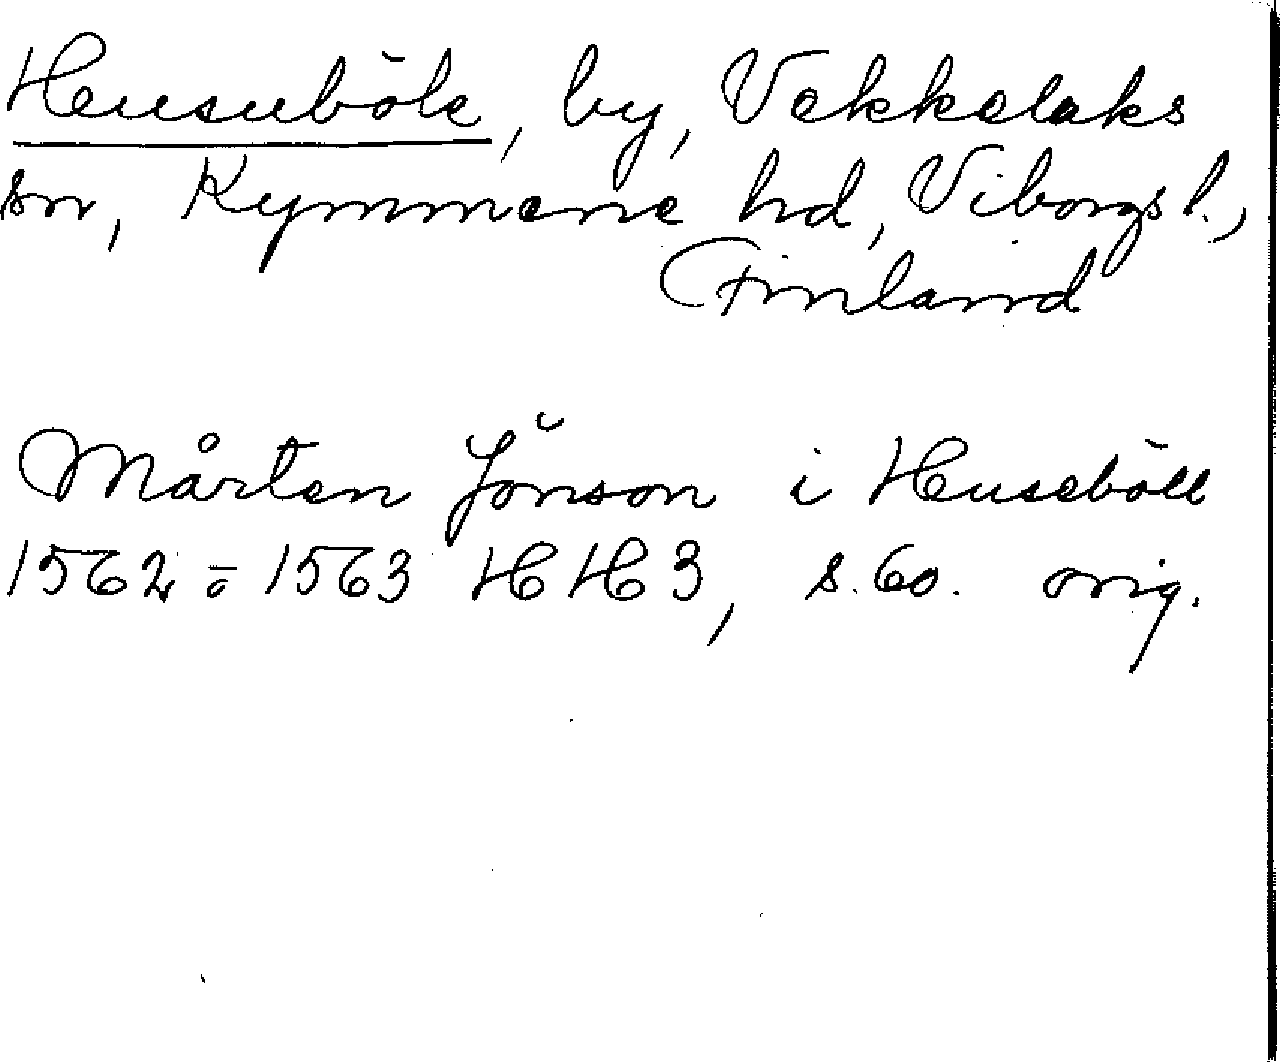 Heusuböle, by, Vekkelaks
sn, Kymmene hd, Viborgs l.,
Finland
Mårten Jönson i Heuseböll
1562 ō 1563 HH3, s. 60. orig.